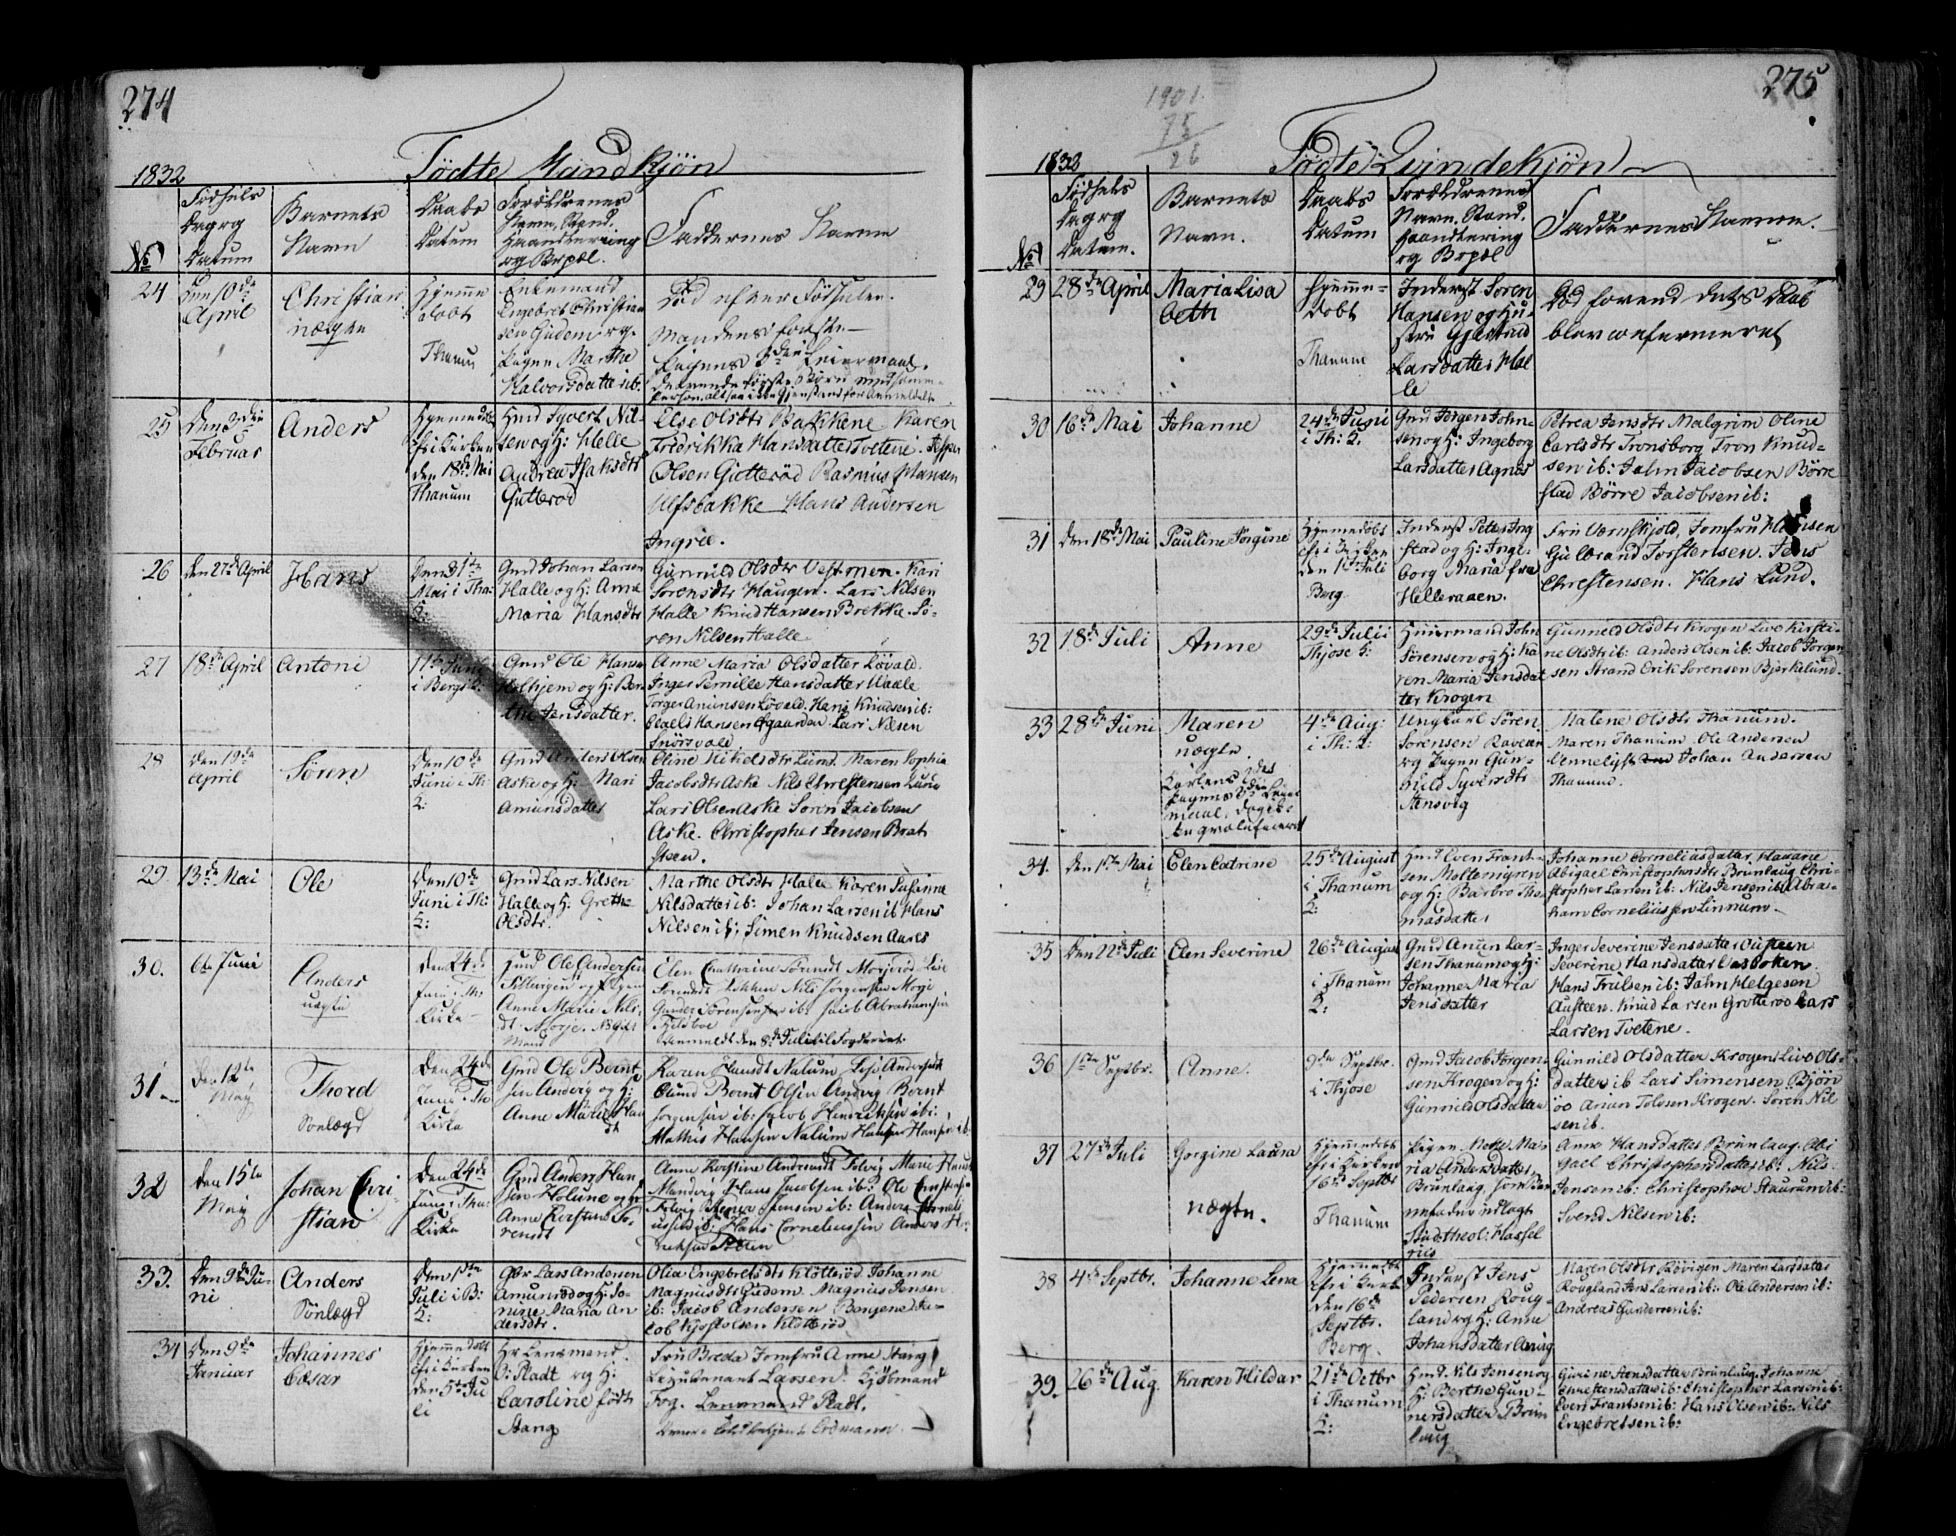 274
1832 Fødte Mandkjøn
No
Fødsels
Dag og
Datum
Barnets
Navn
Daabs
Datum
Forældrenes
Navn, Stand,
Haandtering
og Bopæl.
Faddernes Navne
24
Den 10de
April
Christian
uægte
Hjemme
døbt
Thanum
Enkemand
Engebret Christian
sen Gudem og
Pigen Marthe
Halvorsdatter ib.
Død efter Fødselen.
Mandens første
Pigens 3die Leiermaal.
25
Den 3die
Februar
Anders
Hjemmedøbt
Chr. i Kirken
den 18de Mai
Thanum
Gmd Syvert Nil-
sen og H: Helle
Andrea Isaksdtr
Gjtterød
Else Olsdtr Bakkene Karen
Fredrikka Hansdatter Tottene. Jesper
Olsen Gjetterød Rasmus Hansen
Ulfsbakke Hans Andersen
Ingrie.
26
Den 27de April
Hans
Den 31te
Mai i Tha:
K:
Gmd Johan Larsen
Halle og H: Anne
Maria Hansdtr
Gunnild Olsdtr Vestmen. Kari
Sørensdtr Haugen. Lars Nilsen
Halle Knud Hansen Brekke. Sö-
ren Nilsen Halle
27
18de April
Antoni
11te Juni
i Bergs K:
Gmd Ole Hansen
Holhjem og H: Ber
the Jensdatter.
Anne Maria Olsdatter Løvald.
Inger Pernille Hansdatter Waale
Torger Amundsen Løvald. Hans Knudsen ib:
Claes Hansen Eegaarden. Lars Nilsen
Snørsvald
28
Den 19de
April
Søren
Den 10de
Juni i Th:
K:
Gmd Anders Olsen
Aske og H: Mari
Amundsdatter
Eline Nikelsdtr Lund. Maren Sophia
Jacobsdtr Aske Nils Christensen Lund
Lars Olsen Aske Søren Jacobsen
Aske. Christopher Jensen Brat
steen.
29
13de Mai
Ole
Den 10de
Juni i Th:
K:
Gmd Lars Nilsen
Halle og H: Grethe
Olsdtr.
Marthe Olsdtr Halle Karen Susanne
Nilsdatter ib: Johan Larsen ib Hans
Nilsen ib: Simen Knudsen Aares
30.
6te Juni
Anders
uægte
Den 24de
Juni i Th:
Kirke
Ole Andersen
og Pigen
Anne Marie Nils-
dt
Elen Cathrine Sørensdt
Nils Jørgensen
ib: Jacob Abrahamsen
Anmeldt den 8de Juli til Fogderiet
31
Den 12te
May
Thord
Sønlægd
Den 24de
Juni i Th
Kirke
Gmd Ole Bernt
sen Andvig og H:
Anne Marie Han
dt
Karen Hansdt Nalum
Bernt Olsen Andvig Bernt
Jørgensen ib: Jacob Henriksen ib:
Mathis Hansen Nalum Hansen ib
32
Den 15te
May
Johan Chri-
stian
Den 24de
Juni i Tha:
Kirke
Gmd Anders Han
sen Holune og H:
Anne Kirstine Sø-
rensdt
Anne Kirstine Andreasdt Marie Hansdt
Hans Jacobsen ib: Ole
Jensen ib: Anders
ib: Hans Corneliussen Anders
33.
Den 9de Ju-
ni
Anders
Sønlægd
Den 1ste
Juli i B:
K:
Gbr Lars Andersen
Amunrød og H: So-
nine Maria An
dersdtr.
Olia Engebretsdtr Klotterød Johanne
Magnusdtr Gudem. Magnus Jensen
ib: Jacob Andersen Bonjene Ja-
cob Kjostolsen Klotterød
34
Den 9de
Januar
Johannes
Cæsar
Hjemmedøbt
Chr i Kirken
den 5te Ju
li
Hr Lensmand
O: Pladt og H:
Caroline født
Stang
Fru Breda Jomfru Anne Stang
Lieutenant Larsen. Kjøbmand
Fog. Lensmand Pladt.
275
1901
75
26
1832 Fødte Qvindekjøn
No
Fødsels
Dag og
Datum.
Barnets
Navn.
Daabs
Datum
Forældrenes
Navn. Stand.
Haandtering
og Bopæl
Faddernes Navne.
29
28de April
Maria Lisa
beth
Hjemme-
døbt
Thanum
Inderst Søren
Hansen og Hu-
stru Gjertrud
Larsdatter Hal
le
Død forend dets Daab
blev confirmeret
30
16de Mai
Johanne
24de Juni
i Th: K.
Gmd Jørgen John-
sen og H: Ingeborg
Larsdatter Agnes
Petrea Jensdtr Malgrim Oline
Carlsdtr Tronsborg Tron Knud-
sen ib: Jahn Jacobsen Børre
stad Børre Jacobsen ib:
31
Den 18de Mai
Pauline Jørgine
Hjemmedøbt
Chr i Kirken
den 1ste Juli
Berg.
Inderst Peter Ing
stad og H: Inge-
borg Maria fra
Helleraaen.
Fru Værnskjold, Jomfru Hansen
Gulbrand Torstensen. Jens
Christensen. Hans Lund.
32
18de Juli
Anne
29de Juli i
Thjose K:
Huusmand John
Sørensen og H: Ka
ren Maria Jensdat
ter Krogen
Gunnild Olsdtr Krogen Live Kirsti-
ne Olsdtr ib: Anders Olsen ib: Jacob Jørgen
sen Strand Erik Sørensen Bjørkelund.
33
28de Juni
Maren
uægte.
Karlens 2det
Pigens 3die Leier
maal,
4de Aug:
i Th: K:
Ungkarl Søren
Sørensen Raveaas
og Pigen Gun-
hild Syversdtr
Stensvig
Malene Olsdtr Thanum.
Maren Thanum Ole Andersen
Vennelyst Johan Andersen
Thanum.
34.
Den 1ste Mai
Elen Catrine
25de August
i Thanum
K:
Hmd Even Frant-
sen Moltemyren
og H: Barbro Tho
masdatter
Johanne Corneliusdatter Havane
Abigael Christophersdtr Brunlaug Chri-
stopher Larsen ib: Nils Jensen ib: Abra-
ham Corneliussen Linnum.
35
Den 22de Juli
Elen Severine
26de August
i Thanum
K:
Gmd Anun Lar-
sen Thanum og H:
Johanne Maria
Jensdatter
Inger Severine Jensdatter Austeen
Severine Hansdatter Vasboten
Hans Trulsen ib: Jahn Helgesen
Austeen. Knud Larsen Grotterøe Lars
Larsen Tvetene.
36
1ste Septbr.
Anne.
9de Septbr.
i Thjose
Gmd Jacob Jørgen-
sen Krogen og H:
Gunnild Olsdatter
Gunnild Olsdatter Krogen Live Ols-
datter ib Lars Simensen Bjørn
øe Arian Tolvsen Krogen. Søren Nil
sen ib.
37
27de Juli
Gorgine Laura
uægte.
Hjemmedøbt
Chr i Kirken
16de Septbr
Thanum
Pigen Mette Ma-
ria Andersdatter
Brunlaug, som Bar
nefader udlagt
Stud: theol: Hassel
riis
Anne Hansdatter Brunlaug. Abi
gael Christophersdatter ib: Nils
Jensen ib: Christopher Staurum ib:
Svend Nilsen ib:
38
4de Septbr.
Johanne Lena
Hjemmedøbt
Chr i Kirk
den 16de
Septbr.
Berg.
Inderst Jens
Pedersen Roug-
land og H: Anne
Johansdatter Aning
Maren Olsdtr Røvigen Maren Larsdatter
Rougland Jens Larsen ib: Ole Anderson ib:
Andreas Gundersen ib:
39.
26de Aug.
Karen Hildar
21de Octbr
i Thanum
K:
Hmd Nils Jensen og
H: Berthe Gun-
nersdatter Brun
laug
Gurine Stensdatter Brunlaug. Johanne
Christensdatter ib: Christopher Larsen ib:
Even Frantsen ib: Hans Olsen ib: Nils
Engebretsen ib: